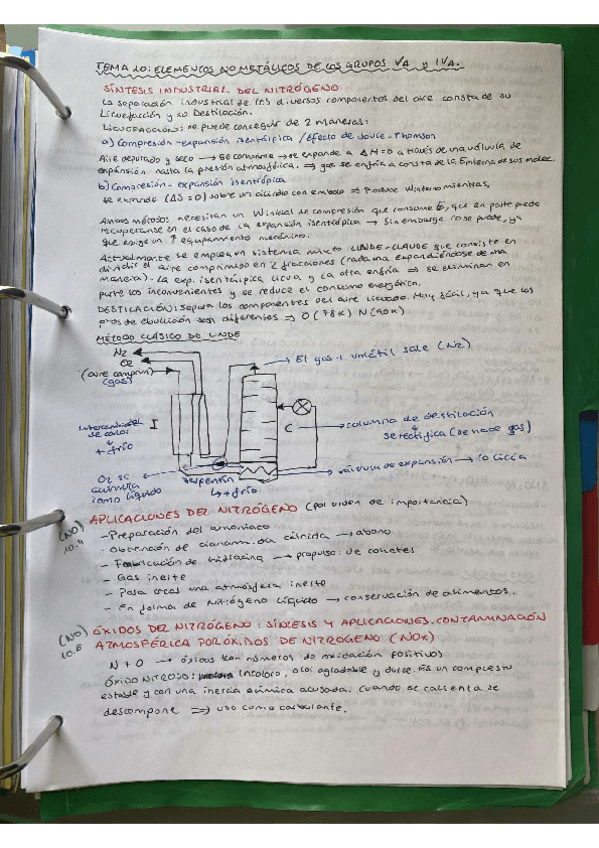 TEMA 10: ELEMENTOS NO METÁLICOS DE LOS GRUPOS VA y IVA.
SÍNTESIS INDUSTRIAL DEL NITRÓGENO
La separación industrial de los diversos componentes del aire consta de su
Licuefacción y su Destilación.
LICUEFACCIÓN: se puede conseguir de 2 maneras:
a) Compresión-expansión isentálpica / Efecto de Joule-Thomson
Aire depurado y seco → se comprime → se expande a ΔH=0 a través de una válvula de
expansión hasta la presión atmosférica. ⇒ gas se enfría a costa de la Eninterna de sus molec.
b) Compresión-expansión isentrópica
se expande (ΔS=0) sobre un cilindro con émbolo ⇒ Produce W
Ambos métodos necesitan un W inicial de compresión que consume E, que en parte puede
recuperarse en el caso de la expansión isentrópica → Sin embargo no se puede, ya
que exige un ↑ equipamento mecánico.
Actualmente se emplea un sistema mixto LINDE-CLAUDE que consiste en
dividir el aire comprimido en 2 fracciones (cada una expandiéndose de una
manera). La exp. isentálpica licua y la otra enfría ⇒ se eliminan en
parte los inconvenientes y se reduce el consumo energético.
DESTILACIÓN: Separa los componentes del aire licuado. Muy fácil, ya que los
ptos de ebullición son diferentes ⇒ O (78K) N (90K)
MÉTODO CLÁSICO DE LINDE
N2
O2
(aire comprim)
(gas)
→ El gas + volátil sale (N2)
Intercambiador
de calor
I
+ frío
C
→ columna de destilación
se rectifica (se hace gas)
O2 se
acumula
como líquido
serpentín
↳ + frío
válvula de expansión → lo licúa
(NO)
10.4
APLICACIONES DEL NITRÓGENO (por orden de importancia)
- Preparación del amoniaco
- Obtención de cianamida cálcica → abono
- Fabricación de hidracina → propulsor de cohetes
- Gas inerte
- Para crear una atmósfera inerte
- En forma de Nitrógeno líquido → conservación de alimentos.
(NO)
10.6
ÓXIDOS DEL NITRÓGENO: SÍNTESIS Y APLICACIONES. CONTAMINACIÓN
ATMOSFÉRICA POR ÓXIDOS DE NITRÓGENO (NOx)
N + O → óxidos con números de oxidación positivos
ÓXIDO NITROSO: Incoloro, olor agradable y dulce. Es un compuesto
estable y con una inercia química acusada. Cuando se calienta se
descompone ⇒ uso como carburante.